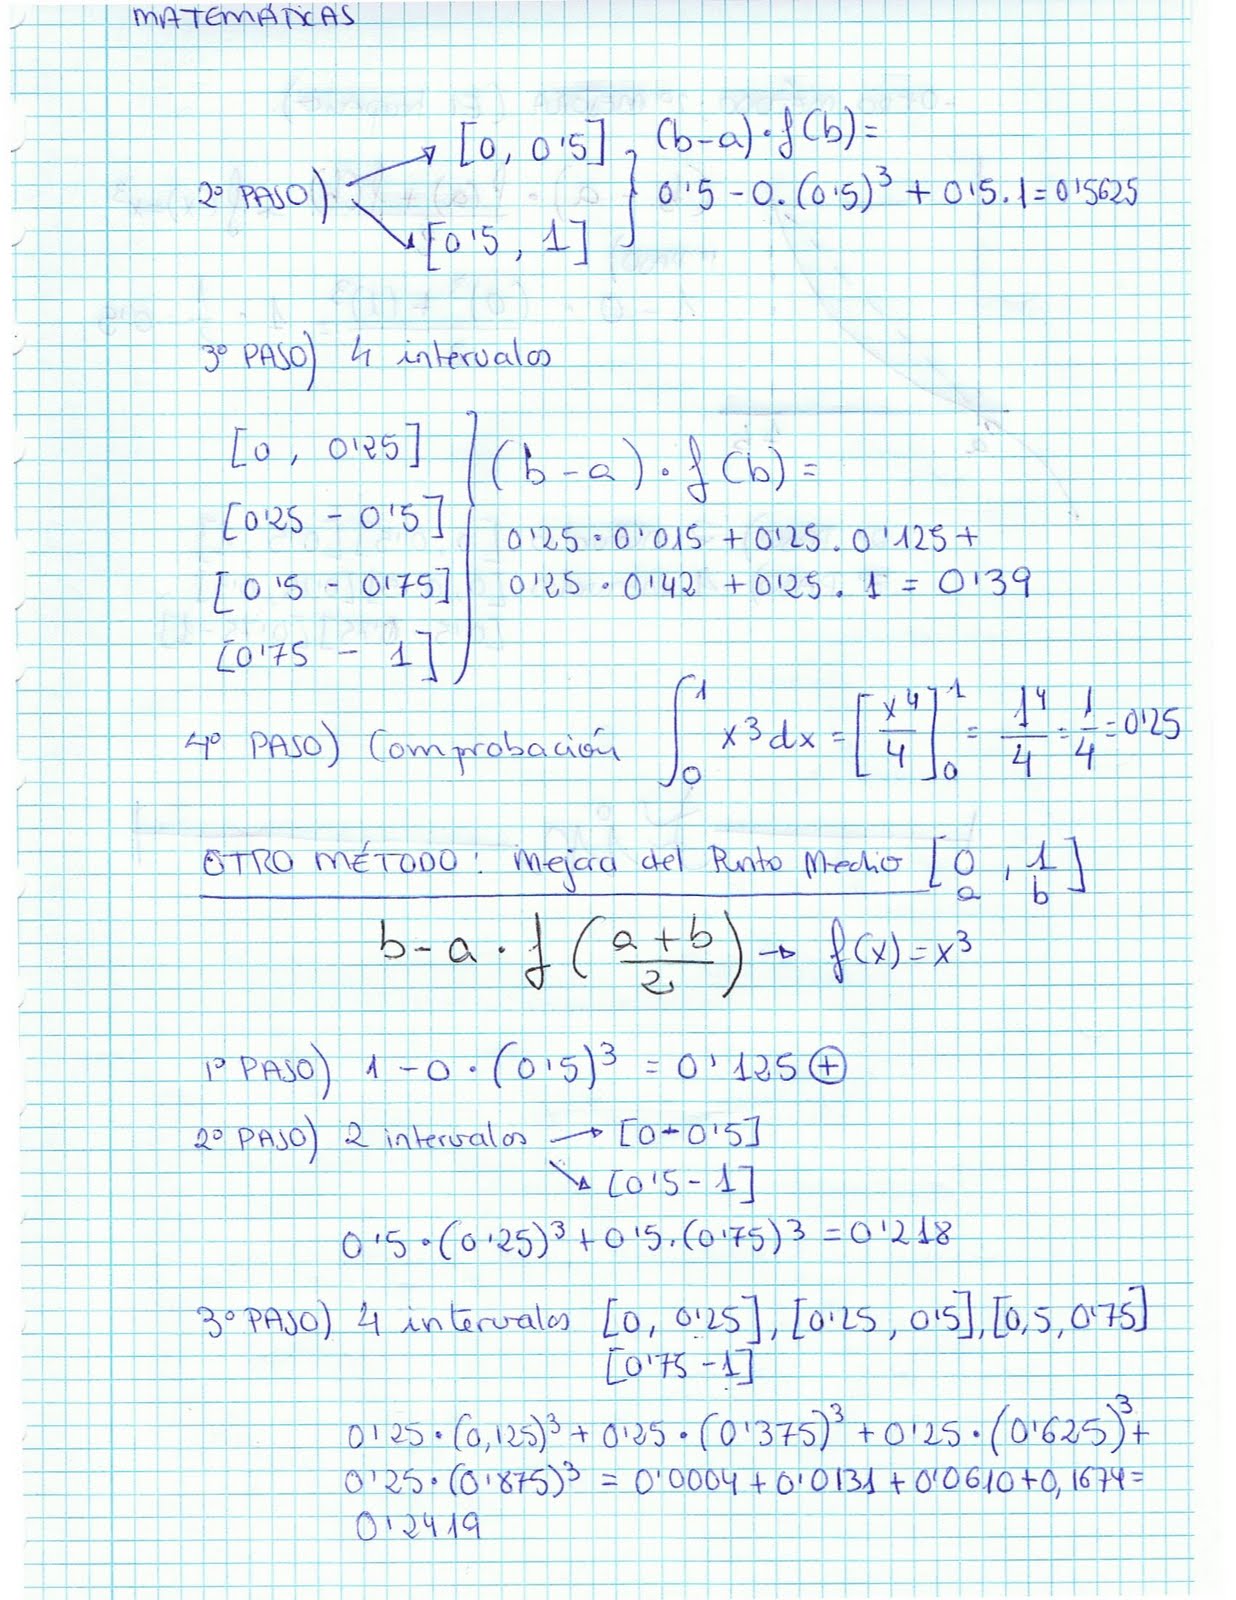 MATEMÁTICAS
[0, 0'5] , (b-a)·f(b)=
2º PASO)
0'5 - 0·(0'5)³ + 0'5·1=0'5625
[0'5, 1]
3º PASO) 4 intervalos
[0, 0'25]
(b-a)·f(b)=
[0'25 - 0'5]
0'25·0'015 + 0'25·0'125+
[0'5 - 0'75]
0'25·0'42 + 0'25·1 = 0'39
[0'75 - 1]
4º PASO) Comprobación ∫₀¹ x³dx = [x⁴/4]₀¹ = 1⁴/4 = 1/4 = 0'25
OTRO MÉTODO: Mejora del Punto Medio [0, 1]
a b
b-a·f(a+b/2) → f(x)=x³
1º PASO) 1-0·(0'5)³ = 0'125 ⊕
2º PASO) 2 intervalos → [0-0'5]
[0'5-1]
0'5·(0'25)³ + 0'5·(0'75)³ = 0'218
3º PASO) 4 intervalos [0, 0'25], [0'25, 0'5], [0,5, 0'75]
[0'75-1]
0'25·(0,125)³ + 0'25·(0'375)³ + 0'25·(0'625)³+
0'25·(0'875)³ = 0'0004 + 0'0131 + 0'0610 + 0,1674=
0'2419